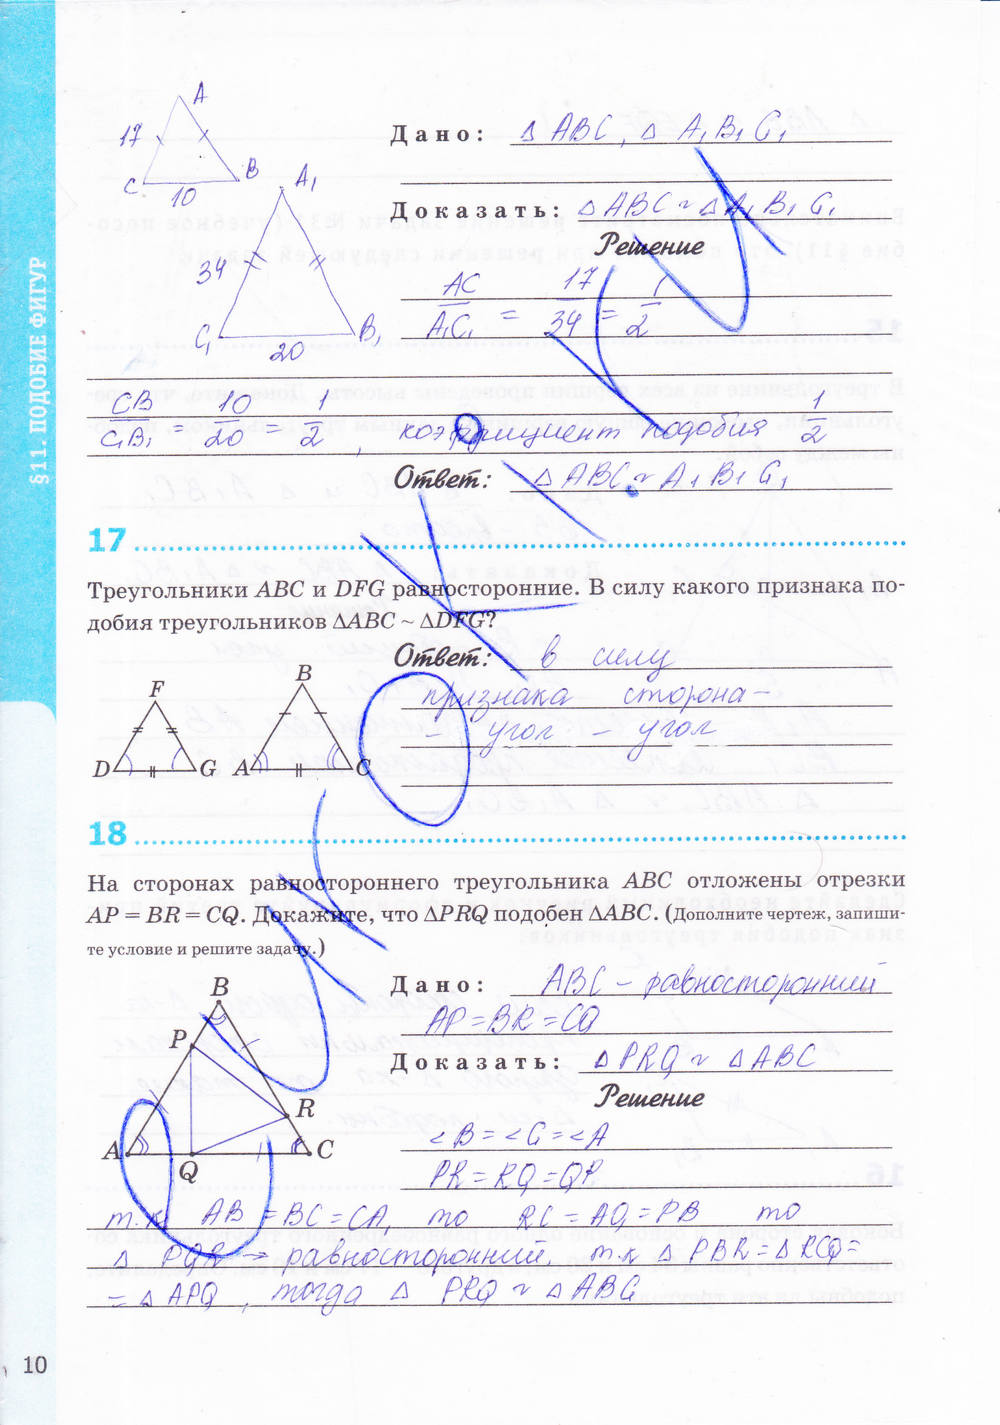 A
17
C
10
B
Дано: Δ ABC, Δ A₁B₁C₁
Доказать: Δ ABC ~ Δ A₁B₁C₁
Решение
A₁
34
C₁
20
B₁
AC/A₁C₁ = 17/34 = 1/2
CB/C₁B₁ 10/20 = 1/2, коэффициент подобия 1/2
Ответ: Δ ABC ~ A₁B₁C₁
§11. ПОДОБИЕ ФИГУР
17
Треугольники ABC и DFG равносторонние. В силу какого признака по-
добия треугольников ΔABC ~ ΔDFG?
Ответ: в силу
признака сторона-
- угол - угол
F
D
G
B
A
C
18
На сторонах равностороннего треугольника ABC отложены отрезки
AP = BR = CQ. Докажите, что ΔPRQ подобен ΔABC. (Дополните чертеж, запиши-
те условие и решите задачу.)
B
P
R
A
Q
C
Дано: ABC - равносторонний
AP = BR = CQ
Доказать: Δ PRQ ~ Δ ABC
Решение
<B = <C = <A
PR = RQ = QP
т.к AB = BC = CA, то RC = AQ = PB то
Δ PQR → равносторонний, т.к Δ PBR = Δ RCQ =
= Δ APQ, тогда Δ PRQ ~ Δ ABC
10